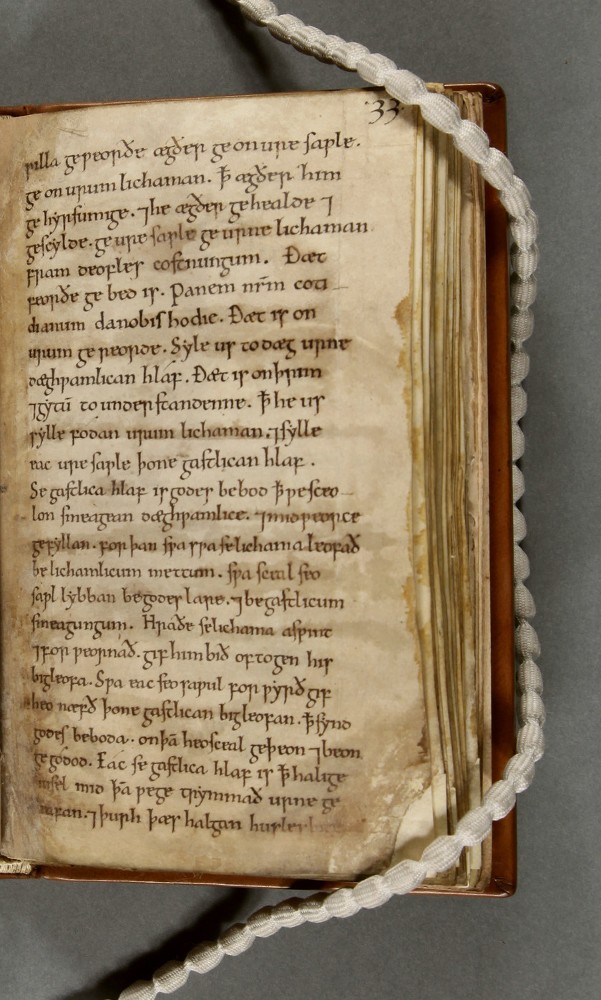 33
ƿilla geƿeorðe ægðer ge on ure saƿle.
ge on urum lichaman. ꝥ ægðer him
ge hyrsumige. ⁊ he ægðer gehealde ⁊
gescylde. ge ure saƿle ge urne lichaman
fram deofles costnungum. Ðæt
feorðe ge bed is. Panem nr̄m coti
dianum da nobis hodie. Ðæt is on
urum ge reorde. Syle us to dæg urne
dæghƿamlican hlaf. Ðæt is on þrim
⁊gytū to understandenne. ꝥ he us
sylle fodan urum lichaman. ⁊ sylle
eac ure saƿle þone gastlican hlaf.
Se gastlica hlaf is godes bebod ꝥ ƿe sceo
lon smeagean dæghƿamlice. ⁊ mid ƿeorce
gefyllan. for þan sƿa sƿa se lichama leofað
be lichamlicum mettum. sƿa sceal seo
saƿl lybban be godes lare. ⁊ be gastlicum
smeagungum. Hraðe se lichama asƿint
⁊ for ƿeornað. gif him bið oftogen his
bigleofa. Sƿa eac seo saƿul for ƿyrð gif
heo næfð þone gastlican bigleofan. ꝥ synd
godes beboda. on þā heo sceal geþeon ⁊ beon
ge godod. Eac se gastlica hlaf is ꝥ halige
husel mid þā ƿe ge trymmað urne ge
leafan. ⁊ þurh þæs halgan husles